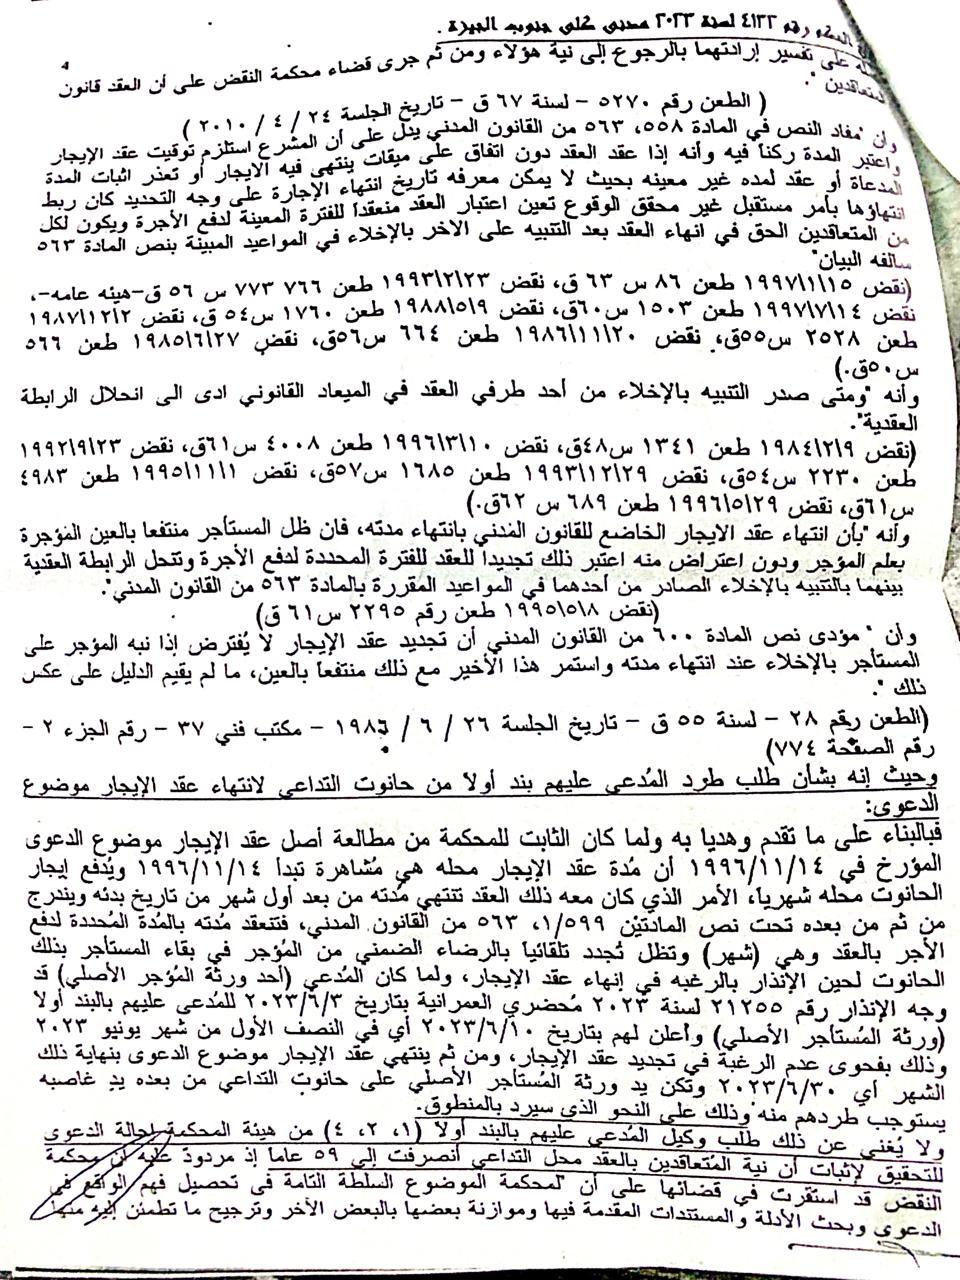 الحكم رقم ٤١٢٢ لسنة ٢٠٢٣ مدنى كلى جنوب الجيزة .
على تفسير إرادتهما بالرجوع إلى نية هؤلاء ومن ثم جرى قضاء محكمة النقض على أن العقد قانون
المتعاقدين ".
( الطعن رقم ٥٢٧٠ - لسنة ٦٧ ق - تاريخ الجلسة ٢٤ / ٤ / ٢٠١٠ )
وأن "مفاد النص في المادة ٥٥٨، ٥٦٣ من القانون المدني يدل على أن المشرع استلزم توقيت عقد الإيجار
واعتبر المدة ركناً فيه وأنه إذا عقد العقد دون اتفاق على ميقات ينتهى فيه الايجار أو تعذر اثبات المدة
المدعاة أو عقد لمده غير معينه بحيث لا يمكن معرفه تاريخ انتهاء الإجارة على وجه التحديد كان ربط
انتهاؤها بأمر مستقبل غير محقق الوقوع تعين اعتبار العقد منعقداً للفترة المعينة لدفع الأجرة ويكون لكل
من المتعاقدين الحق في انهاء العقد بعد التنبيه على الاخر بالإخلاء في المواعيد المبينة بنص المادة ٥٦٣
سالفه البيان"
(نقض ١٩٩٧/١/١٥ طعن ٨٦ س ٦٣ ق، نقض ١٩٩٣/٢/٢٣ طعن ٧٦٦ ٧٧٣ س ٥٦ ق-هيئه عامه-،
نقض ١٩٩٧/٧/١٤ طعن ١٥٠٣ س٦٠ق، نقض ١٩٨٨/٥/٩ طعن ١٧٦٠ س٥٤ ق، نقض ١٩٨٧/١٢/٢
طعن ٢٥٢٨ س٥٥ق، نقض ١٩٨٦/١١/٢٠ طعن ٦٦٤ س٥٦ق، نقض ١٩٨٥/٦/٢٧ طعن ٥٦٦
س٥٠ق.)
وأنه "ومتى صدر التنبيه بالإخلاء من أحد طرفي العقد في الميعاد القانوني ادى الى انحلال الرابطة
العقدية".
(نقض ١٩٨٤/٢/٩ طعن ١٣٤١ س٤٨ق، نقض ١٩٩٦/٣/١٠ طعن ٤٠٠٨ س٦١ق، نقض ١٩٩٢/٩/٢٣
طعن ٢٢٣٠ س٥٤ق، نقض ١٩٩٣/١٢/٢٩ طعن ١٦٨٥ س٥٧ق، نقض ١٩٩٥/١١/١ طعن ٤٩٨٣
س٦١ق، نقض ١٩٩٦/٥/٢٩ طعن ٦٨٩ س ٦٢ق.)
وأنه "بأن انتهاء عقد الايجار الخاضع للقانون المدني بانتهاء مدته، فان ظل المستأجر منتفعا بالعين المؤجرة
بعلم المؤجر ودون اعتراض منه اعتبر ذلك تجديداً للعقد للفترة المحددة لدفع الأجرة وتنحل الرابطة العقدية
بينهما بالتنبيه بالإخلاء الصادر من أحدهما في المواعيد المقررة بالمادة ٥٦٣ من القانون المدني".
(نقض ١٩٩٥/٥/٨ طعن رقم ٢٢٩٥ س٦١ ق)
وأن " مؤدى نص المادة ٦٠٠ من القانون المدني أن تجديد عقد الإيجار لا يُفترض إذا نبه المؤجر على
المستأجر بالإخلاء عند انتهاء مدته واستمر هذا الأخير مع ذلك منتفعاً بالعين، ما لم يقيم الدليل على عكس
ذلك ".
(الطعن رقم ٢٨ - لسنة ٥٥ ق - تاريخ الجلسة ٢٦ / ٦ / ١٩٨٦ - مكتب فني ٣٧ - رقم الجزء ٢ -
رقم الصفحة ٧٧٤)
وحيث إنه بشأن طلب طرد المُدعى عليهم بند أولاً من حانوت التداعى لانتهاء عقد الإيجار موضوع
الدعوى:
فبالبناء على ما تقدم وهديا به ولما كان الثابت للمحكمة من مطالعة أصل عقد الإيجار موضوع الدعوى
المؤرخ في ١٩٩٦/١١/١٤ أن مُدة عقد الإيجار محله هي مُشاهرة تبدأ ١٩٩٦/١١/١٤ ويُدفع إيجار
الحانوت محله شهريا، الأمر الذي كان معه ذلك العقد تنتهي مُدته من بعد أول شهر من تاريخ بدئه ويندرج
من ثم من بعده تحت نص المادتيْن ١/٥٩٩، ٥٦٣ من القانون المدني، فتنعقد مُدته بالمُدة المُحددة لدفع
الأجر بالعقد وهي (شهر) وتظل تُجدد تلقائياً بالرضاء الضمني من المُؤجر في بقاء المستأجر بذلك
الحانوت لحين الإنذار بالرغبه في إنهاء عقد الإيجار، ولما كان المُدعي (أحد ورثة المُؤجر الأصلي) قد
وجه الإنذار رقم ٢١٢٥٥ لسنة ٢٠٢٣ مُحضري العمرانية بتاريخ ٢٠٢٣/٦/٣ للمُدعى عليهم بالبند أولا
(ورثة المُستأجر الأصلي) وأعلن لهم بتاريخ ٢٠٢٣/٦/١٠ أي في النصف الأول من شهر يونيو ٢٠٢٣
وذلك بفحوى عدم الرغبة في تجديد عقد الإيجار، ومن ثم ينتهي عقد الإيجار موضوع الدعوى بنهاية ذلك
الشهر أي ٢٠٢٣/٦/٣٠ وتكن يد ورثة المُستأجر الأصلي على حانوت التداعي من بعده يدٍ غاصبه
يستوجب طردهم منه وذلك على النحو الذي سيرد بالمنطوق.
ولا يُغني عن ذلك طلب وكيل المُدعى عليهم بالبند أولا (١، ٢، ٤) من هيئة المحكمة إحالة الدعوى
للتحقيق لإثبات أن نية المُتعاقدين بالعقد محل التداعي أنصرفت إلى ٥٩ عاماً إذ مردودٌ عليه أن محكمة
النقض قد استقرت في قضائها على أن "لمحكمة الموضوع السلطة التامة فى تحصيل فهم الواقع في
الدعوى وبحث الأدلة والمستندات المقدمة فيها وموازنة بعضها بالبعض الأخر وترجيح ما تطمئن إليه منها